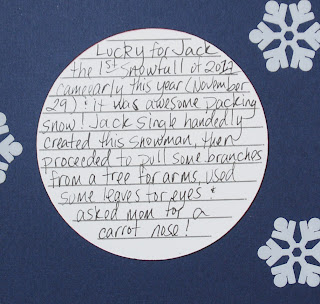 Lucky for Jack
the 1st snowfall of 2011
came early this year (November
29)! it was awesome packing
snow! Jack single handedly
created this snowman, then
proceeded to pull some branches
from a tree for arms, used
some leaves for eyes &
asked mom for a
carrot nose!